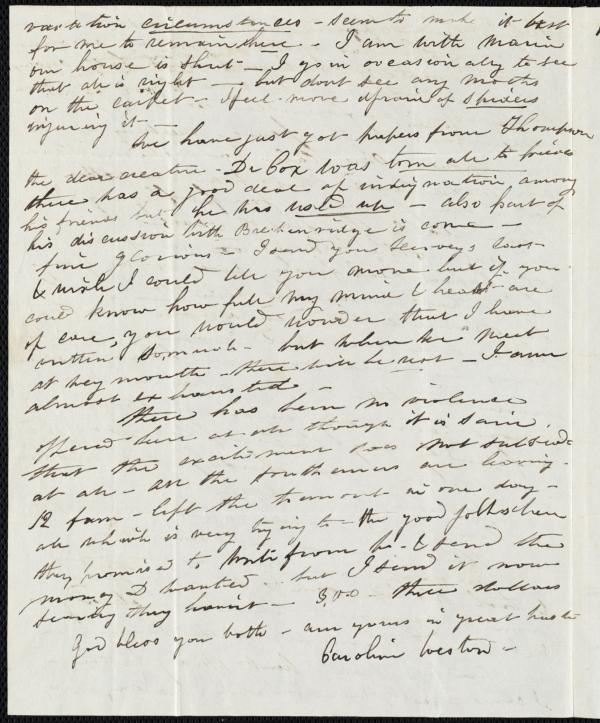 vacation circumstances - seem to make it best
for me to remain here - I am with Maria
our house is shut - I go in occasionally to see
that all is right - but dont see any moths
on the carpet - I feel more afraid of spiders
injuring it -
We have just got papers from Thompson
the dear creature - Dr Cox was torn all to pieces
there has a good deal of indignation among
his friends but he was used up - also part of
his discussion with Breckenridge is come -
fine Glorious - I send you
& wish I could tell you more but if you
could know how full my mind & heart are
of care, you would wonder that I have
written so much - but when we meet
at Weymouth - there will be not - I am
almost exhausted -
There has been no violence
offered here at all though it is said
that the excitement has not subsided
at all - all the southerners are leaving -
12 fam - left the tremont in one day -
all which is very trying to - the good folks here
they promised to write from & send the
money D wanted but I send it now
fearing they havnt - 3,00 - three dollars
God bless you both - am yours in great haste
Caroline Weston -